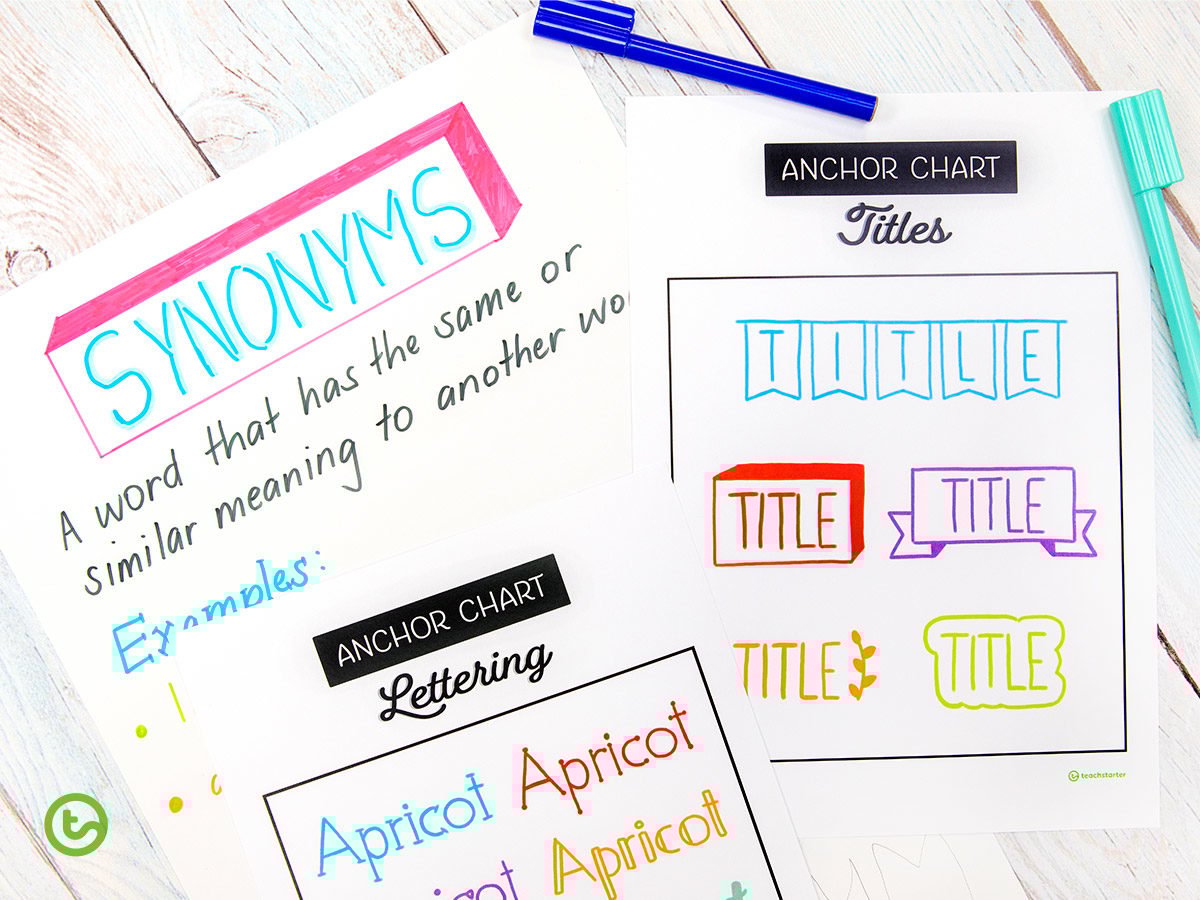 SYNONYMS
A word that has the same or
similar meaning to another
Examples:
ANCHOR CHART
Titles
TITLE
TITLE
TITLE
TITLE
TITLE
teachstarter
ANCHOR CHART
Lettering
Apricot
Apricot
Apricot